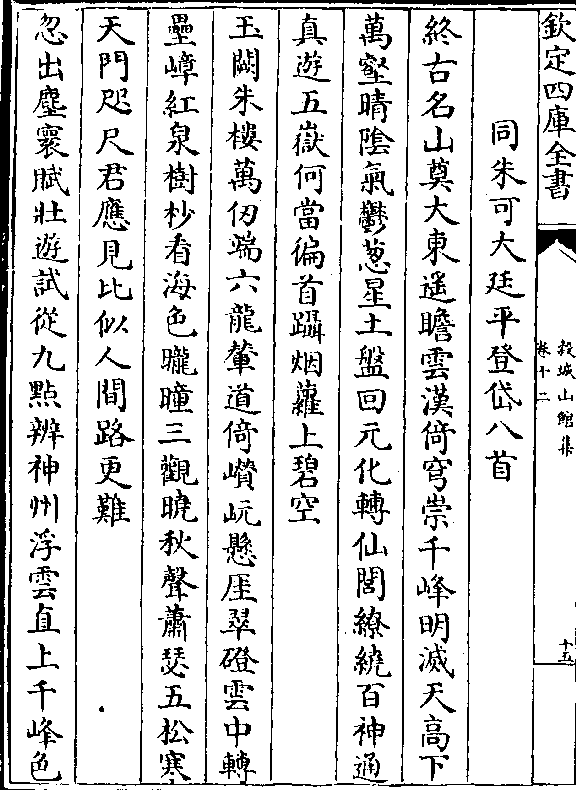 欽定四庫全書
穀城山館集
卷十二
十五
同朱可大廷平登岱八首
終古名山奠大東遙瞻雲漢倚穹崇千峰明滅天高下
萬壑晴陰氣鬱葱星土盤回元化轉仙閭繚繞百神通
真遊五嶽何當徧首躡烟蘿上碧空
玉闕朱樓萬仞端六龍輦道倚巑岏懸厓翠磴雲中轉
疊嶂紅泉樹杪看海色曨曈三觀曉秋聲蕭瑟五松寒
天門咫尺君應見比似人間路更難
忽出塵寰賦壯遊試從九點辨神州浮雲直上千峰色